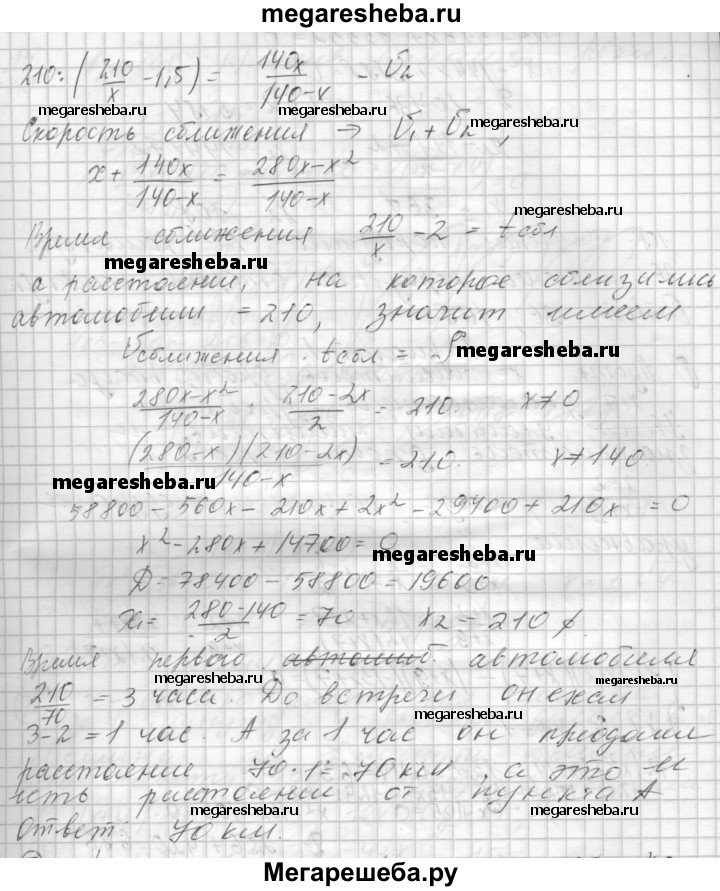 megaresheba.ru
210 : (210/x - 1,5) = 140x/(140-x) - V₂
megaresheba.ru megaresheba.ru
Скорость сближения → V₁ + V₂,
megaresheba.ru
x + 140x/(140-x) = (280x-x²)/(140-x)
megaresheba.ru megaresheba.ru
Время сближения 210/x - 2 = tсбл
megaresheba.ru
megaresheba.ru
а расстоянии, на которое сблизились
автомобили = 210, значит имеем
Vсближения · tсбл = S
megaresheba.ru
(280x-x²)/(140-x) · (210-2x)/2 = 210. x≠0
(280-x)(210-2x)/(140-x) = 210. x≠140
megaresheba.ru
58800 - 560x - 210x + 2x² - 29400 + 210x = 0
x² - 280x + 14700 = 0
megaresheba.ru
D = 78400 - 58800 = 19600
x₁ = (280-140)/2 = 70 x₂ = 210 ∉.
megaresheba.ru
Время первого автомоб. автомобиля
megaresheba.ru
210/70 = 3 часа. До встречи он ехал
megaresheba.ru
3-2 = 1 час А за 1 час он проехал
расстояние 70·1 = 70 км, а это и
megaresheba.ru
есть расстояние от пункта А
megaresheba.ru megaresheba.ru
Ответ: 70 км.
megaresheba.ru
Мегарешеба.ру